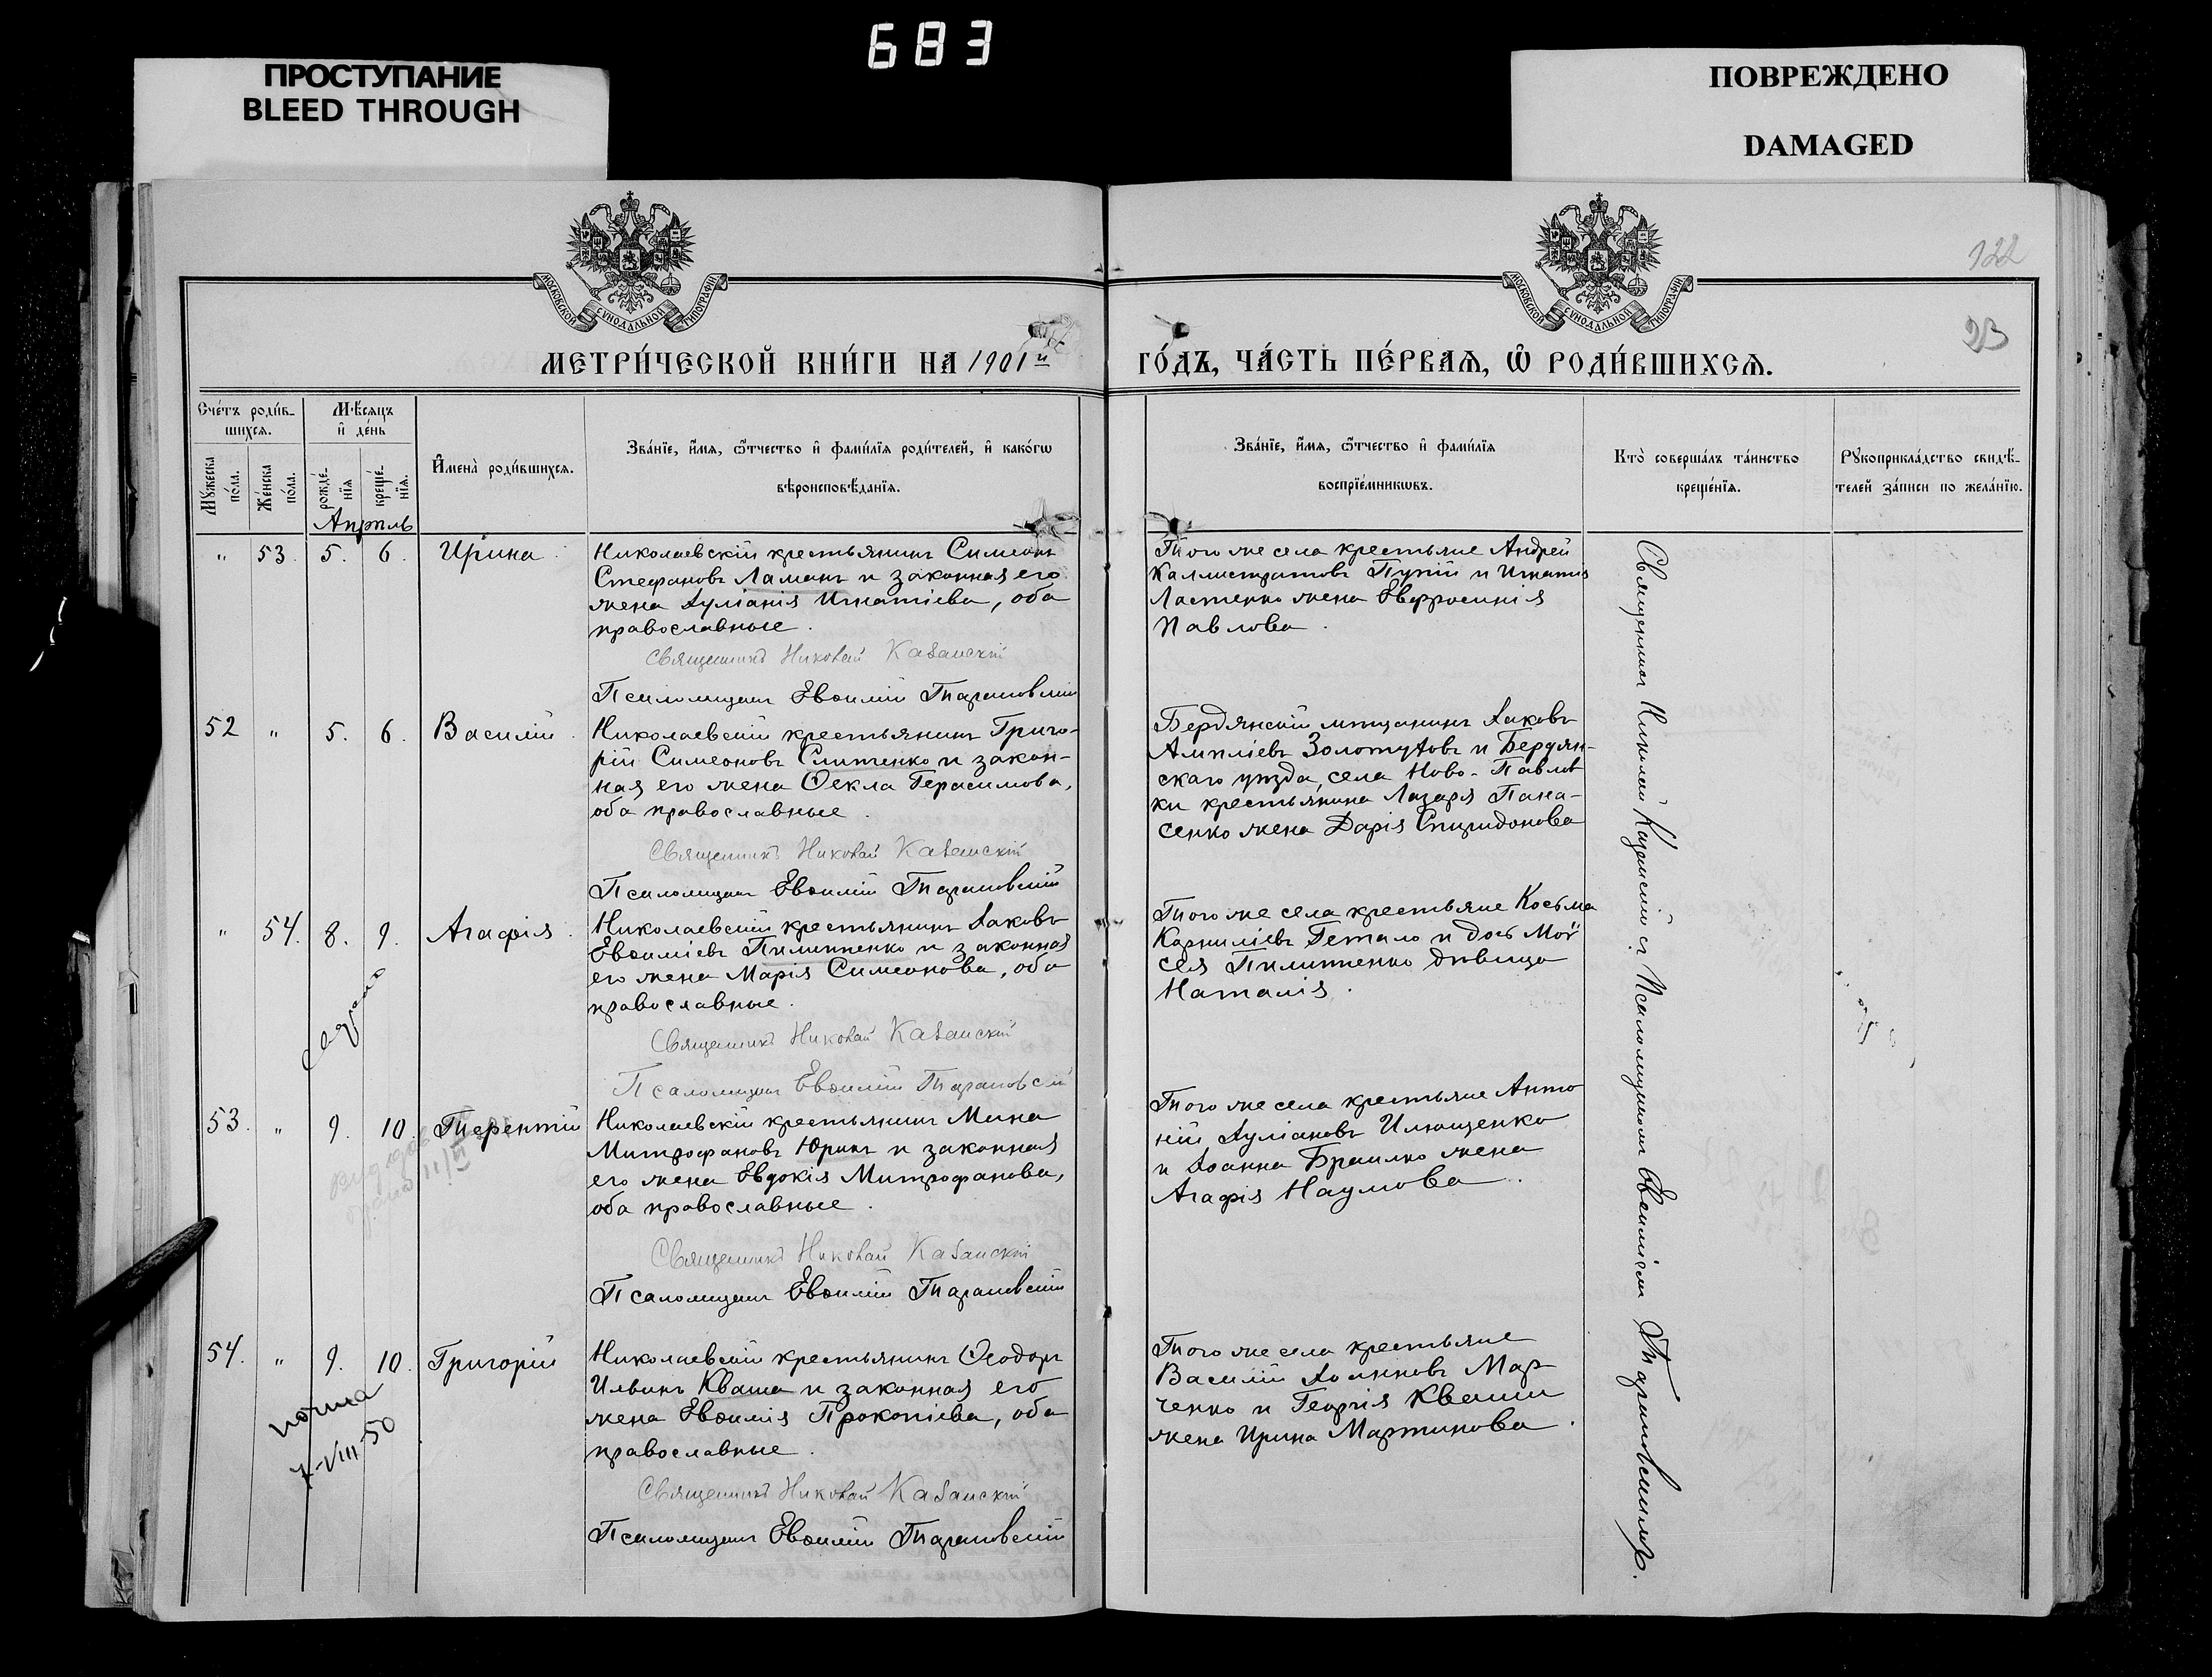 683
ПРОСТУПАНИЕ
BLEED THROUGH
ПОВРЕЖДЕНО
DAMAGED
МОСКОВСКОЙ СѴНОДАЛЬНОЙ ТИПОГРАФІИ
МОСКОВСКОЙ СѴНОДАЛЬНОЙ ТИПОГРАФІИ
122
23
МЕТРИ́ЧЕСКОЙ КНИ́ГИ НА 1901 й
ГО́ДЪ, ЧА́СТЬ ПЕ́РВАѦ, Ѡ РОДИ́ВШИХСѦ.
Сче́тъ роди́в-
шихсѧ.
Мѣ́сяцъ
и де́нь
Мꙋ́жеска по́ла.
Же́нска по́ла.
рожде́-
нїѧ
креще́-
нїѧ.
Имена̀ роди́вшихсѧ.
Зва́нїе, и́мѧ, ѻ́тчество и фами́лїѧ роди́телей, и како́гѡ
вѣроисповѣ́данїѧ.
Зва́нїе, и́мѧ, ѻ́тчество и фами́лїѧ
воспрїе́мникѡвъ.
Кто̀ соверша́лъ та́инство
креще́нїѧ.
Рꙋкоприкла́дство свидѣ́-
телей за́писи по жела́нїю.
Апрѣль
" 53. 5. 6. Ирина.
Николаевскій крестьянинъ Симеонъ
Стефановъ Ламанъ и законная его
жена Іуліанія Игнатіева, оба
православные.
Священникъ Николай Казанскій
Псаломщикъ Евѳимій Тарановскій
Того же села крестьяне Андрей
Каллистратовъ Пугій и Игнатія
Ластенко жена Евфросинія
Павлова.
52 " 5. 6. Василій.
Николаевскій крестьянинъ Григо-
рій Симеоновъ Слипченко и закон-
ная его жена Ѳекла Герасимова,
оба православные.
Священникъ Николай Казанскій
Псаломщикъ Евѳимій Тарановскій
Бердянскій мѣщанинъ Іаковъ
Ампліевъ Золотуховъ и Бердян-
скаго уѣзда, села Ново-Павлов
ки крестьянина Лазаря Пана-
сенко жена Дарія Спиридонова
" 54. 8. 9. Агафія.
Николаевскій крестьянинъ Іаковъ
Евѳиміевъ Пилипенко и законная
его жена Марія Симеонова, оба
православные.
Священникъ Николай Казанскій
Псаломщикъ Евѳимій Тарановскій
Того же села крестьяне Косьма
Корниліевъ Гетало и дочь Мои
сея Пилипенко дѣвица
Наталія.
53. " 9. 10. Терентій
11/VI
Николаевскій крестьянинъ Мина
Митрофановъ Юринъ и законная
его жена Евдокія Митрофанова,
оба православные.
Священникъ Николай Казанскій
Псаломщикъ Евѳимій Тарановскій
Того же села крестьяне Анто
ній Іуліановъ Илющенко
и Іоанна Браилко жена
Агафія Наумова.
54. " 9. 10. Григорій
7-VIII-50
Николаевскій крестьянинъ Ѳеодоръ
Ильинъ Кваша и законная его
жена Евѳимія Прокопіева, оба
православные.
Священникъ Николай Казанскій
Псаломщикъ Евѳимій Тарановскій
Того же села крестьяне
Василій Іоанновъ Мар
ченко и Георгія Кваши
жена Ирина Мартинова.
Священникъ Николай Казанскій съ Псаломщикомъ Евѳиміемъ Тарановскимъ.